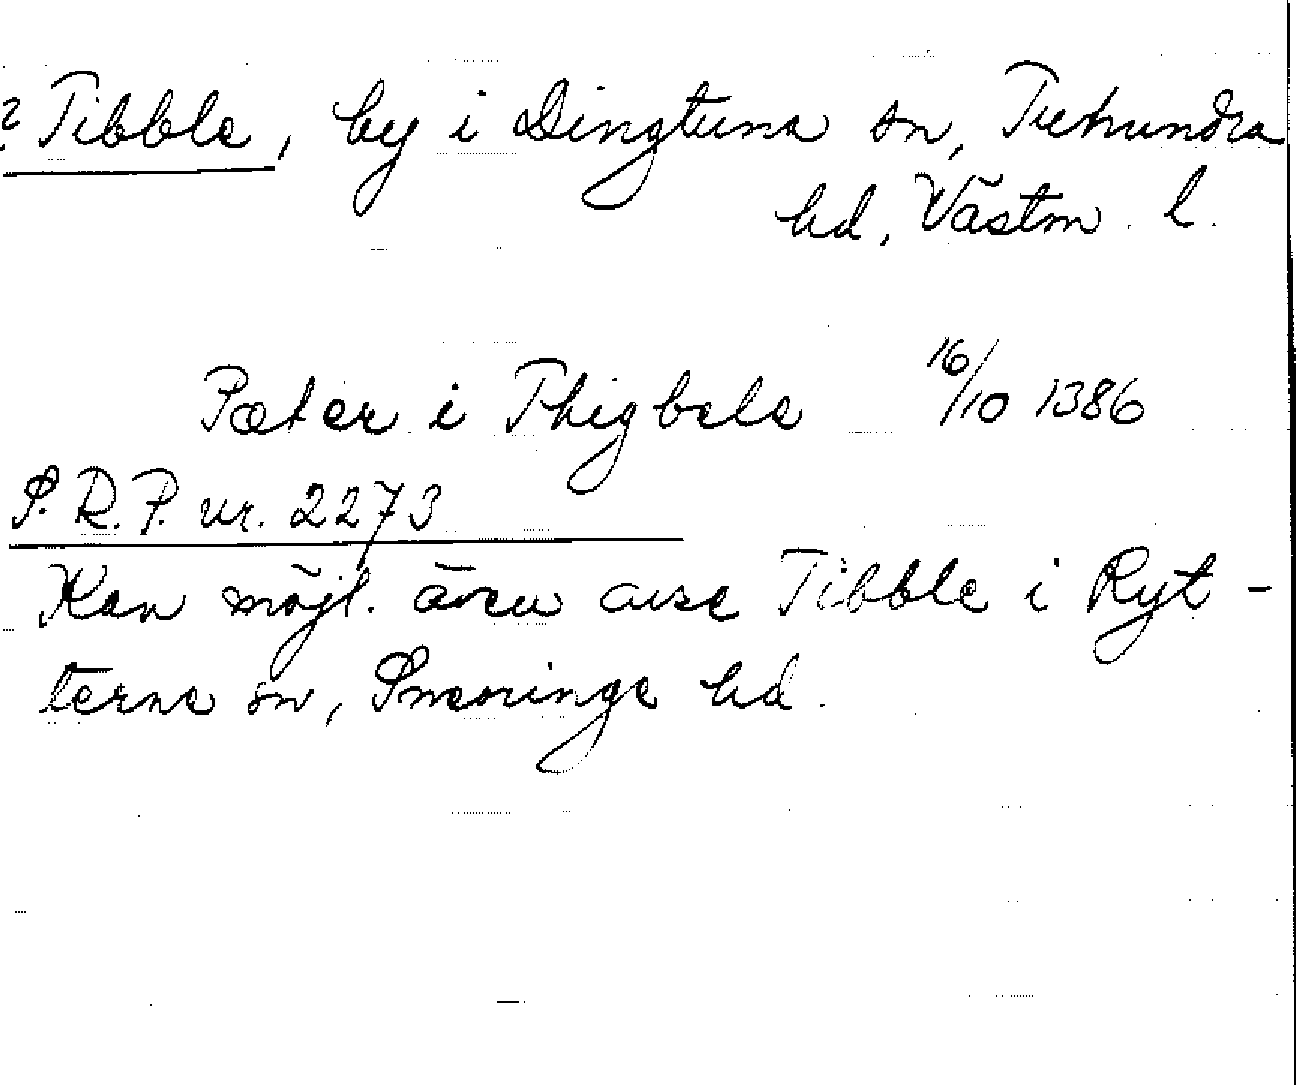 ? Tibble, by i Dingtuna sn, Tuhundra
hd, Västm. l.
Pæter i Thigbele 16/10 1386
S. R. P. nr. 2273
Kan möjl. även avse Tibble i Ryt-
terne sn, Snevringe hd.